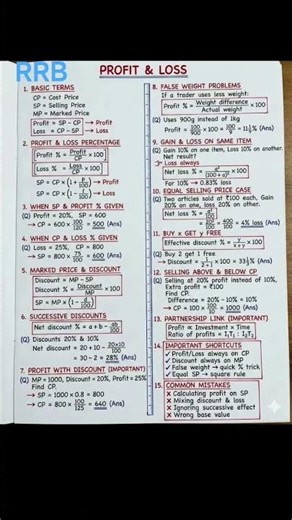 RRB
PROFIT & LOSS
1. BASIC TERMS
CP = Cost Price
SP = Selling Price
MP = Marked Price
Profit = SP - CP → Profit
Loss = CP - SP → Loss
2. PROFIT & LOSS PERCENTAGE
Profit % = Profit/CP × 100
Loss % = Loss/CP × 100
SP = CP × (1 + P/100) → Profit
SP = CP × (1 - L/100) → Loss
3. WHEN SP & PROFIT % GIVEN
(Q) Profit = 20%, SP = 600
→ CP = 600 × 100/120 = 500 (Ans)
4. WHEN CP & LOSS % GIVEN
(Q) Loss = 25%, CP = 800
→ SP = 800 × 75/100 = 600 (Ans)
5. MARKED PRICE & DISCOUNT
Discount = MP - SP
Discount % = Discount/MP × 100
SP = MP × (1 - d/100)
6. SUCCESSIVE DISCOUNTS
Net discount % = a + b - ab/100
(Q) Discounts 20% & 10%
Net discount = 20 + 10 - 20×10/100
= 30 - 2 = 28% (Ans)
7. PROFIT WITH DISCOUNT (IMPORTANT)
(Q) MP = 1000, Discount = 20%, Profit = 25%
Find CP.
→ SP = 1000 × 0.8 = 800
→ CP = 800 × 100/125 = 640 (Ans)
8. FALSE WEIGHT PROBLEMS
If a trader uses less weight:
Profit % = Weight difference/Actual weight × 100
(Q) Uses 900g instead of 1kg
Profit = 100/900 × 100 = 100/9 = 11 1/9 % (Ans)
9. GAIN & LOSS ON SAME ITEM
(Q) Gain 10% on one item, Loss 10% on another.
Net result?
Loss always
Net loss % =
For 10% → 0.83% loss
10. EQUAL SELLING PRICE CASE
(Q) Two articles sold at ₹100 each, Gain
20% on one, loss 20% on other.
Net loss % = = 400/100 = 4% loss (Ans)
11. BUY X GET Y FREE
Effective discount % = y/x+y × 100
(Q) Buy 2 get 1 free
→ Discount = 1/2+1 × 100 = 33 1/3 % (Ans)
12. SELLING ABOVE & BELOW CP
(Q) Selling at 20% profit instead of 10%,
Extra profit = ₹100
Find CP.
Difference = 20% - 10% = 10%
→ CP = 100 × 100/10 = 1000 (Ans)
13. PARTNERSHIP LINK (IMPORTANT)
Profit ∝ Investment × Time
Ratio of profits = I₁T₁ : I₂T₂
14. IMPORTANT SHORTCUTS
✓ Profit/Loss always on CP
✓ Discount always on MP
✓ False weight → quick % trick
✓ Equal SP → square rule
15. COMMON MISTAKES
✗ Calculating profit on SP
✗ Mixing discount & loss
✗ Ignoring successive effect
✗ Wrong base value